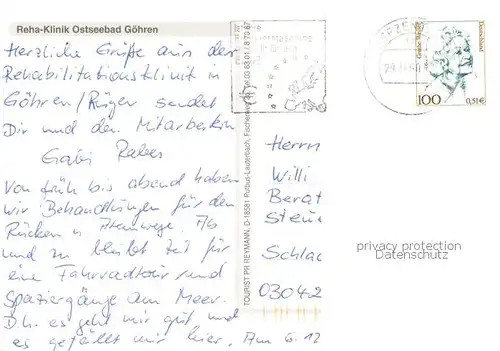 Reha-Klinik Ostseebad Göhren
Herzliche Grüße aus der
Rehabilitationsklinik in
Göhren/Rügen sendet
Dir und den Mitarbeitern
Gabi
Von früh bis abend haben
wir Behandlungen für den
Rücken u. Atemwege. Ab
und zu bleibt Zeit für
eine Fahrradtour und
Spaziergänge am Meer.
D.h. es geht mir gut und
es gefällt mir hier. Am 6.12
TOURIST PR REYMANN, D-18581 Putbus-Lauterbach,
Deutschland
100
0,51€
Herrn
Willi
Berat
Steu
Schlac
03042
privacy protection
Datenschutz